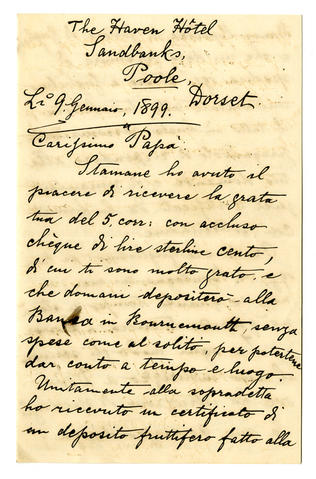 The Haven Hôtel
Sandbanks,
Poole,
Dorset.
Lì 9. Gennaio, 1899.
Carissimo Papà:
Stamane ho avuto il
piacere di ricevere la grata
tua del 5, corr: con accluso
chèque di lire sterline cento,
di cui ti sono molto grato e
che domani depositerò alla
Banca in Bournemouth, senza
spese come al solito, per potertene
dar conto a tempo e luogo.
Unitamente alla sopradetta
ho ricevuto un certificato di
un deposito fruttifero fatto alla